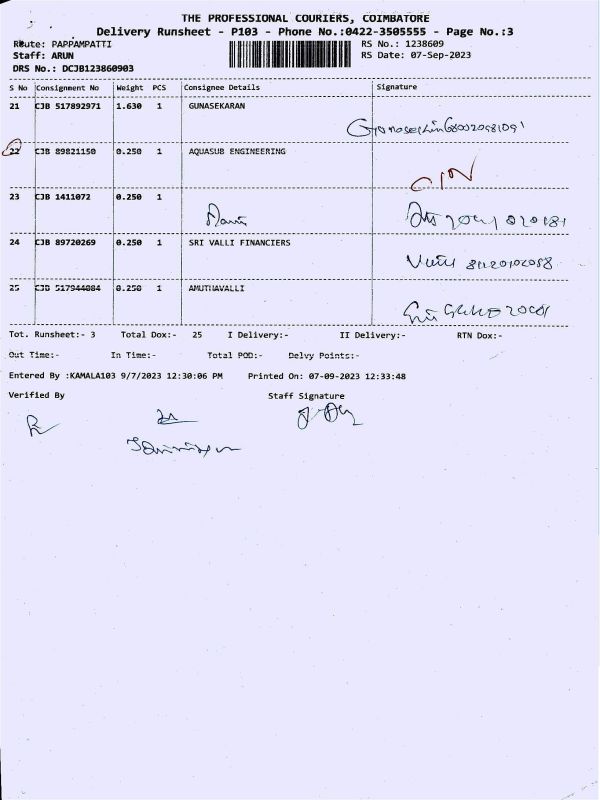 THE PROFESSIONAL COURIERS, COIMBATORE
Delivery Runsheet - P103 - Phone No.:0422-3505555 - Page No.:3
Route: PAPPAMPATTI RS No.: 1238609
Staff: ARUN RS Date: 07-Sep-2023
DRS No.: DCJB123860903
S No Consignment No Weight PCS Consignee Details Signature
21 CJB 517892971 1.630 1 GUNASEKARAN
22 CJB 89821150 0.250 1 AQUASUB ENGINEERING
23 CJB 1411072 0.250 1
24 CJB 89720269 0.250 1 SRI VALLI FINANCIERS
25 CJB 517944084 0.250 1 AMUTHAVALLI
Tot. Runsheet:- 3 Total Dox:- 25 I Delivery:- II Delivery:- RTN Dox:-
Out Time:- In Time:- Total POD:- Delvy Points:-
Entered By :KAMALA103 9/7/2023 12:30:06 PM Printed On: 07-09-2023 12:33:48
Verified By Staff Signature